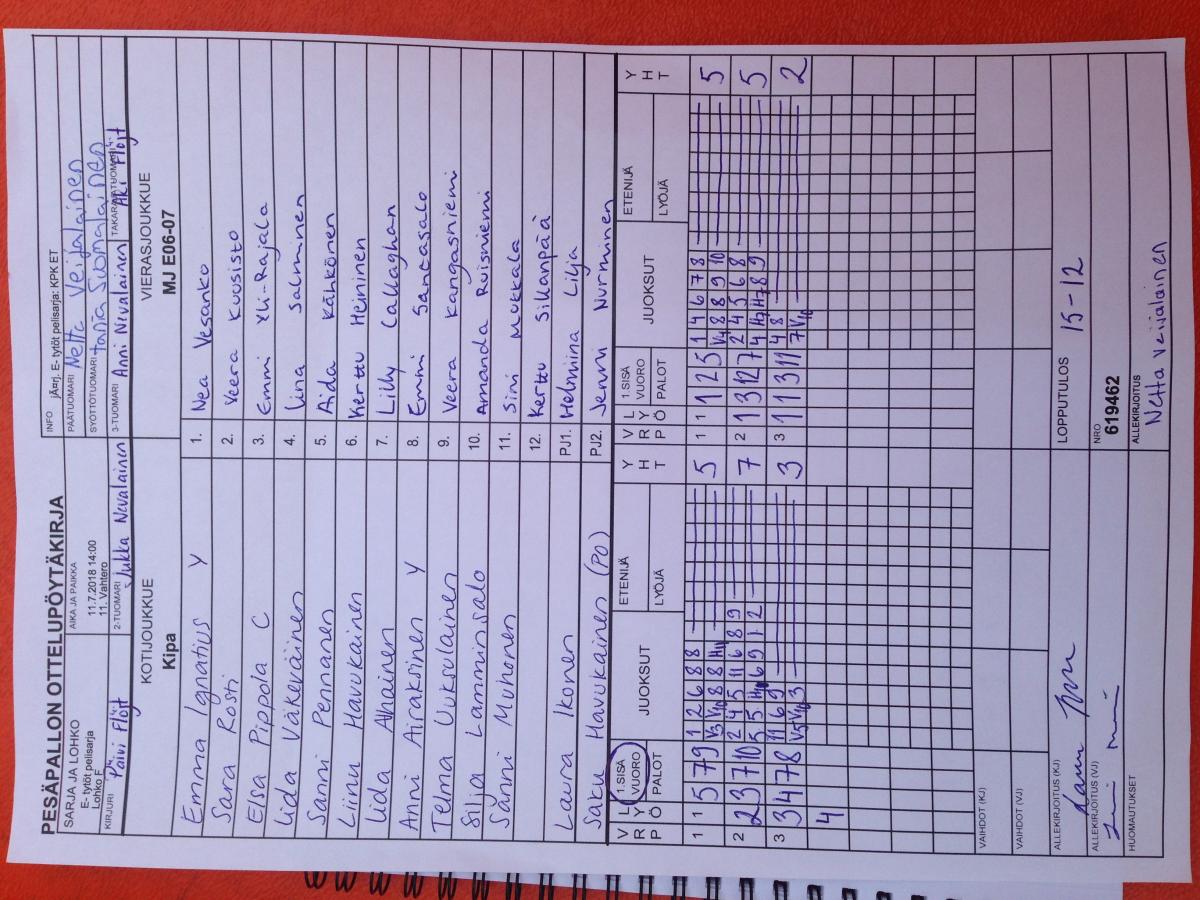 PESÄPALLON OTTELUPÖYTÄKIRJA
SARJA JA LOHKO
E- tytöt pelisarja
Lohko F
AIKA JA PAIKKA
11.7.2018 14:00
11. Vahtero
INFO jÄ¤rj. E- tytöt pelisarja: KPK ET
PÄÄTUOMARI Netta Veijalainen
SYÖTTÖTUOMARI Tania Suomalainen
KIRJURI Päivi Flöjt
2-TUOMARI Jukka Nivalainen
3-TUOMARI Anni Nivalainen
TAKARAJATUOMARI Aki Flöjt
KOTIJOUKKUE
Kipa
VIERASJOUKKUE
MJ E06-07
Emma Ignatius Y 1. Nea Vesanko
Sara Rosti 2. Veera Kuosisto
Elsa Pippola C 3. Emmi Yli-Rajala
Iida Väkeväinen 4. Iina Salminen
Sanni Pennanen 5. Aida Kähkönen
Liinu Havukainen 6. Kerttu Heininen
Iida Ahainen 7. Lilly Callaghan
Anni Airaksinen Y 8. Emmi Santasalo
Telma Uuksulainen 9. Veera Kangasniemi
Silja Lamminsalo 10. Amanda Ruisniemi
Sanni Muhonen 11. Sini Mokkala
12. Kerttu Sillanpää
Laura Ikonen PJ1. Helmiina Lilja
Saku Havukainen (PO) PJ2. Jenni Nurminen
V R P L Y Ö 1.SISÄ VUORO PALOT JUOKSUT ETENIJÄ LYÖJÄ Y H T
V R P L Y Ö 1.SISÄ VUORO PALOT JUOKSUT ETENIJÄ LYÖJÄ Y H T
1 1 5 7 9 1 2 6 8 8 5
V3 V10 8 8 H11
1 1 1 2 5 1 4 6 7 8 5
V4 8 8 9 10
2 2 3 7 10 2 4 5 11 6 8 9 7
5 5 H10 6 9 1 2
2 1 3 12 7 2 4 5 6 8 5
4 H7 H7 8 9
3 3 4 7 8 11 6 9 3
V5 V10 3
3 1 1 3 11 4 8 2
7 V10
4
VAIHDOT (KJ)
VAIHDOT (VJ)
ALLEKIRJOITUS (KJ)
LOPPUTULOS 15-12
ALLEKIRJOITUS (VJ)
NRO
619462
HUOMAUTUKSET
ALLEKIRJOITUS
Netta Veijalainen